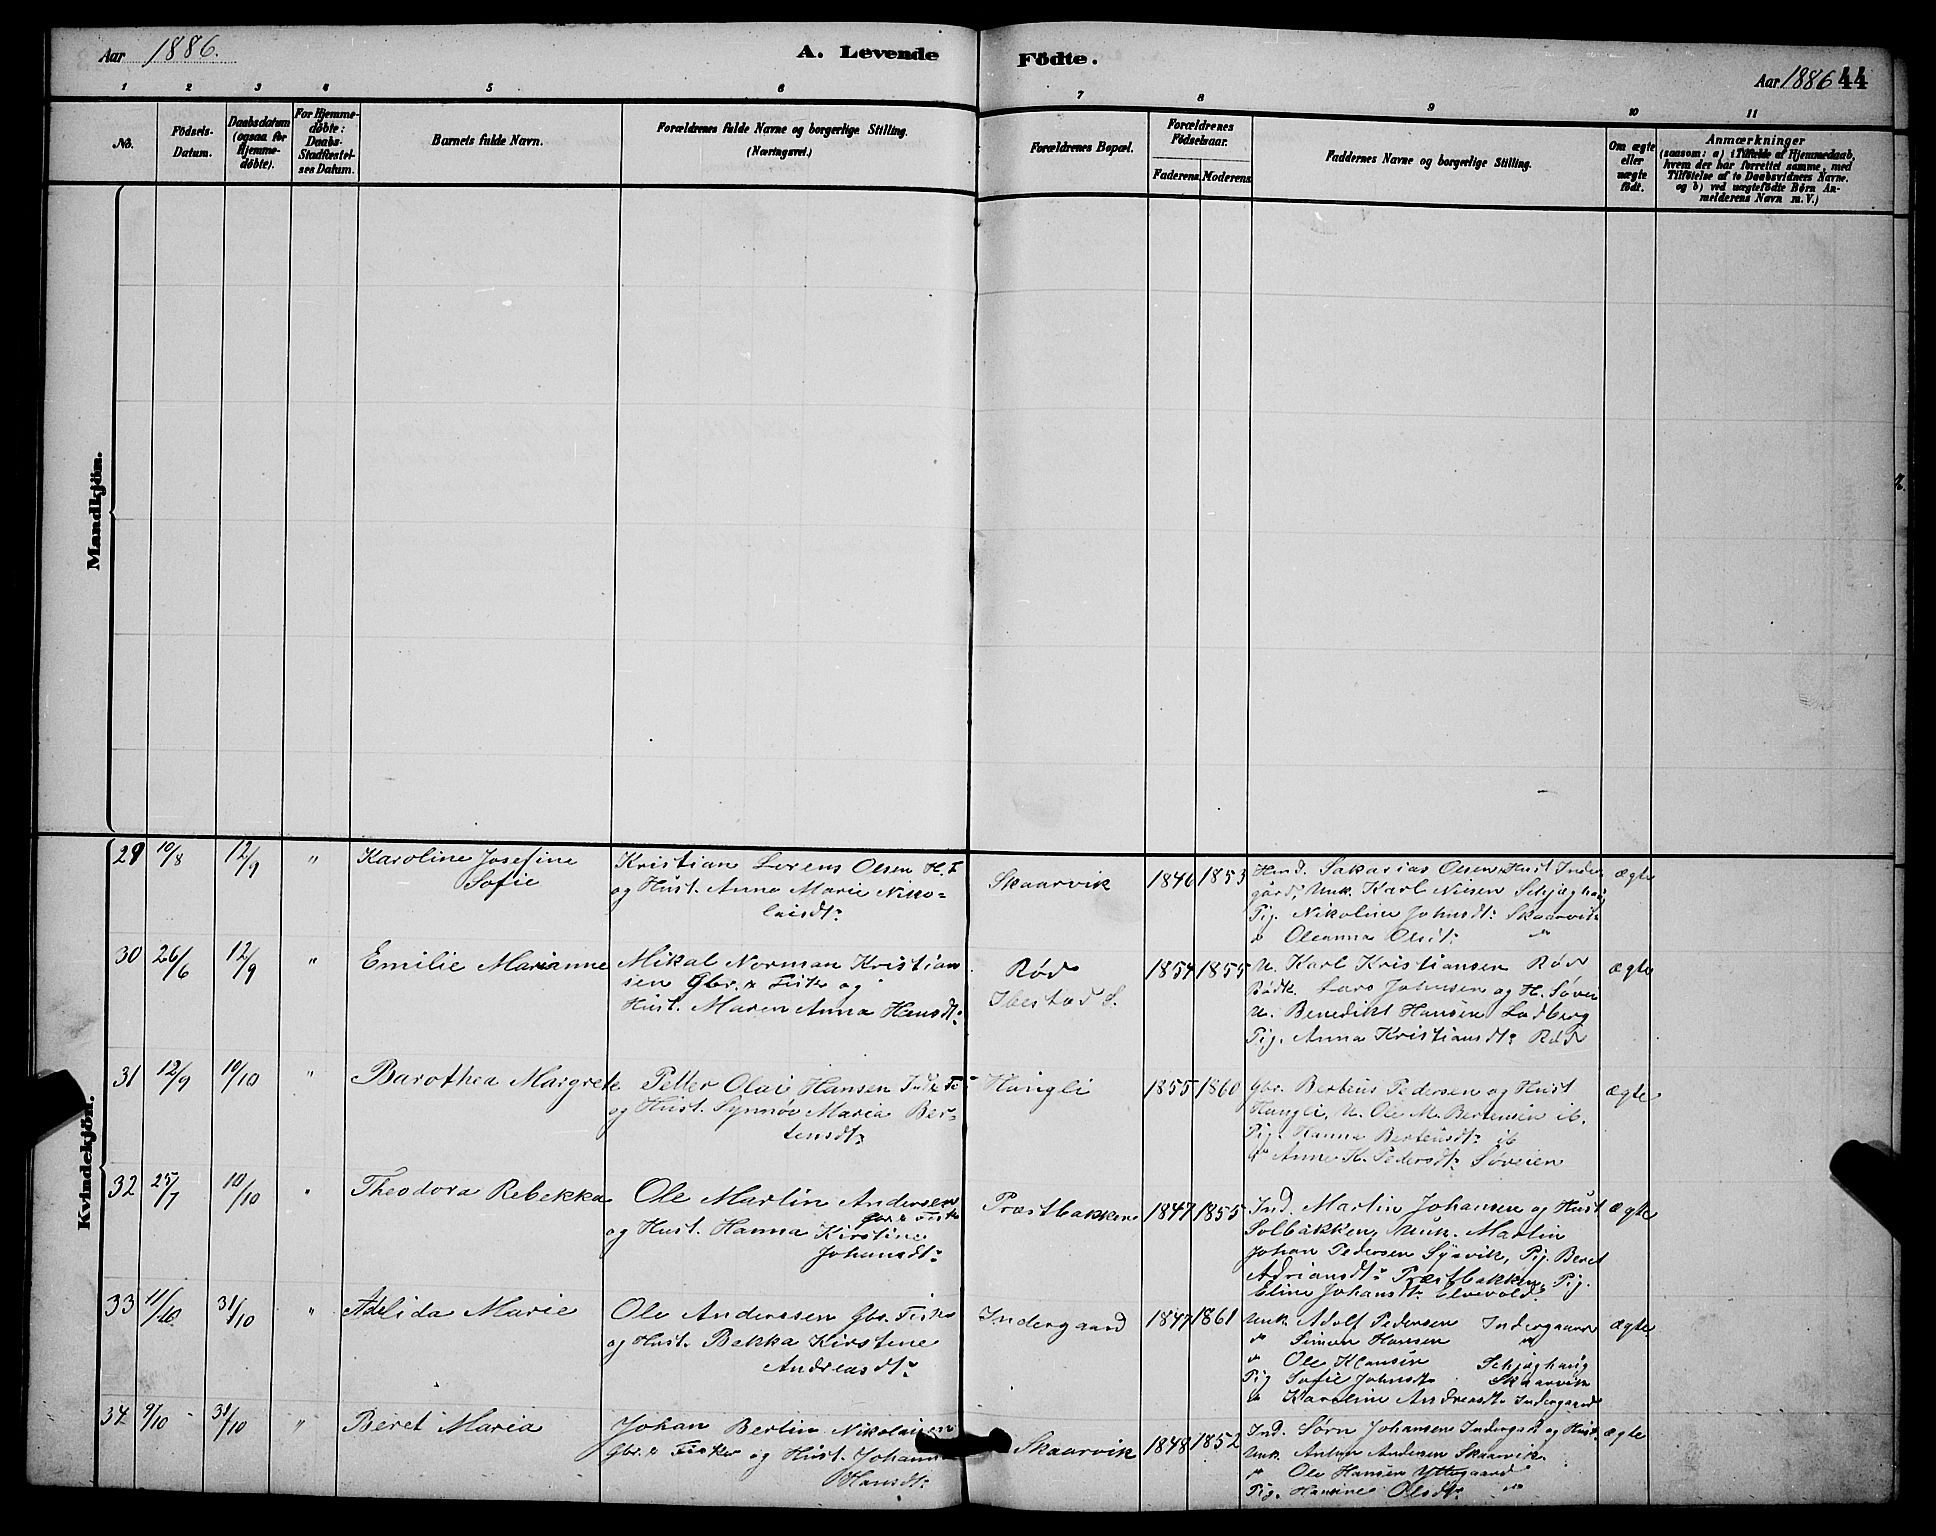 Aar 1886.
A. Levende Födte.
Aar 1886 44
1 2 3 4 5 6 7 8 9 10 11
No.
Födsels-
Datum.
Daabsdatum
(ogsaa for
Hjemme-
døbte).
For Hjemme-
døbte:
Daabs-
Stadfæstel-
ses Datum.
Barnets fulde Navn.
Forældrenes fulde Navne og borgerlige Stilling.
(Næringsvei.)
Forældrenes Bopæl.
Forældrenes
Födselsaar.
Faderens. Moderens.
Faddernes Navne og borgerlige Stilling.
Om ægte
eller
uægte
födt.
Anmærkninger
(saasom: a) i Tilfælde af Hjemmedaab,
hvem der har forrettet samme, med
Tilföielse af to Daabsvidners Navne.
og b) ved uægtefödte Børn An-
melderens Navn m. V.)
Mandkjön.
Kvindekjön.
29 10/8 12/9 " Karoline Josefine
Sofie
Kristian Lorens Olsen H. F
og Hust. Anna Marie Niko-
laisdt:
Skaarvik 1846 1853
Sakarias Olsen Hust Inder
gård, Unk. Karl Nilsen
Pig. Nikoline Johnsdt: Skaarvik
" Oleanna Olsdt: "
ægte
30 26/6 12/9 " Emilie Marianne
Mikal Norman Kristian
sen Gbr. & Fisk og
Hust. Maren Anna Hansdt:
Röd
Ibestad S.
1854 1855
U. Karl Kristiansen Röd
Bödk. Lars Johnsen og H. Søvei
U. Benedikt Hansen Ladberg
Pig. Anna Kristiansdt: Röd
ægte
31 12/9 10/10 " Barothea Margrete
Petter Olai Hansen Inds Fi
og Hust. Synnöv Maria Ber-
tensdt:
Hangli 1855 1860
Gbr. Berteus Pedersen og Hust
Hangli, U. Ole M. Bertensen ib.
Pig. Hanna Berteusdt: ib
" Anne H. Pedersdt: Søveien
ægte
32 25/7 10/10 " Theodora Rebekka
Ole Martin Andersen
Gbr. & Fisk
og Hust. Hanna Kirstine
Johansdt:
Præstbakken 1847 1855
Ind. Martin Johansen og Hust
Solbakken, Unk. Martin
Johan Pedersen Sjøvik, Pig. Beret
Adriansdt: Præstbakken, Pig.
Eline Johansdt: Elvevold.
ægte
33 11/10 31/10 " Adelida Marie
Ole Anderssen Gbr. Fisker
og Hust. Bekka Kirstene
Andreasdt:
Indergaard 1847 1861
Unk. Adolf Pedersen Indergaard
" Simon Hansen "
" Ole Klausen
Pig Sofie Johnsdt: Skaarvik
" Karoline Andreasdt: Indergaard
ægte
34 9/10 31/10 " Beret Maria
Johan Bertin Nikolaisen
Gbr. & Fisker og Hust. Johanna
Hansdt:
Skaarvik 1848 1852
Ind. Sørn Johansen Indergak og Hust.
Unk. Anton Andersen Skaarvik
" Ole Hansen Yttergaard
Pig. Hansine Olsdt: "
ægte